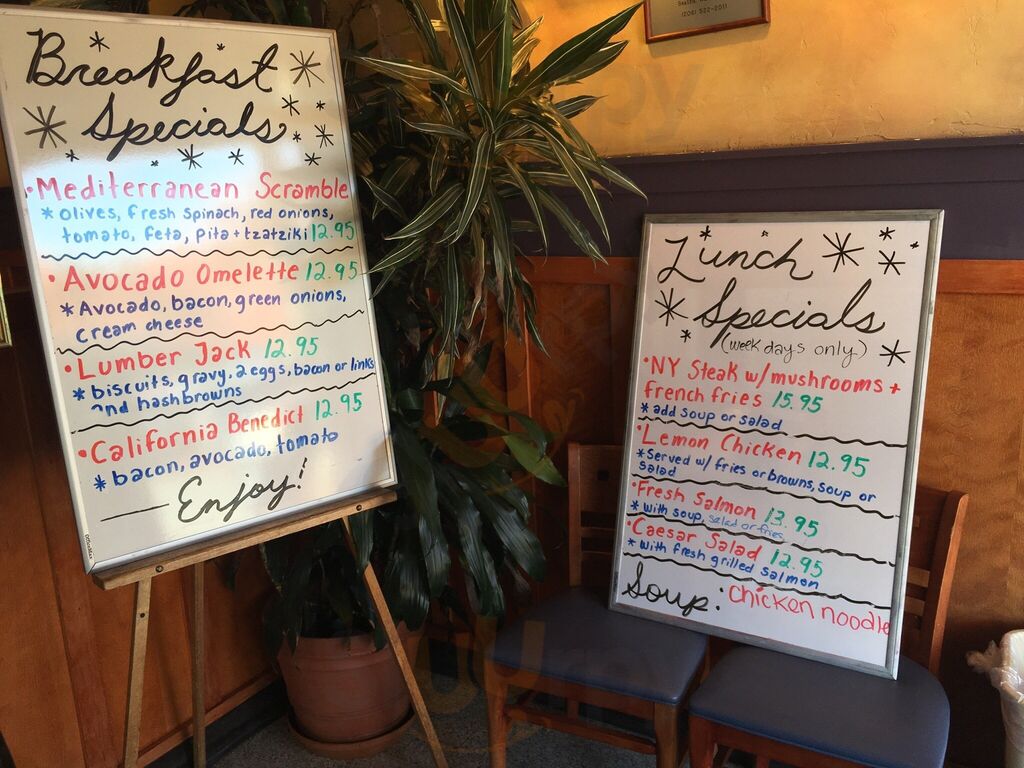 Breakfast
Specials
• Mediterranean Scramble
* olives, fresh spinach, red onions,
tomato, feta, pita + tzatziki 12.95
• Avocado Omelette 12.95
* Avocado, bacon, green onions,
cream cheese
• Lumber Jack 12.95
* biscuits, gravy, 2 eggs, bacon or links
and hashbrowns
• California Benedict 12.95
* bacon, avocado, tomato
Enjoy!
OfficeMax
(206) 522-2011
Lunch
Specials
(week days only)
• NY Steak w/mushrooms +
french fries 15.95
* add soup or salad
• Lemon Chicken 12.95
* Served w/ fries or browns, soup or
salad
• Fresh Salmon 13.95
* with soup, salad or fries
• Caesar Salad 12.95
* with fresh grilled salmon
Soup: chicken noodle